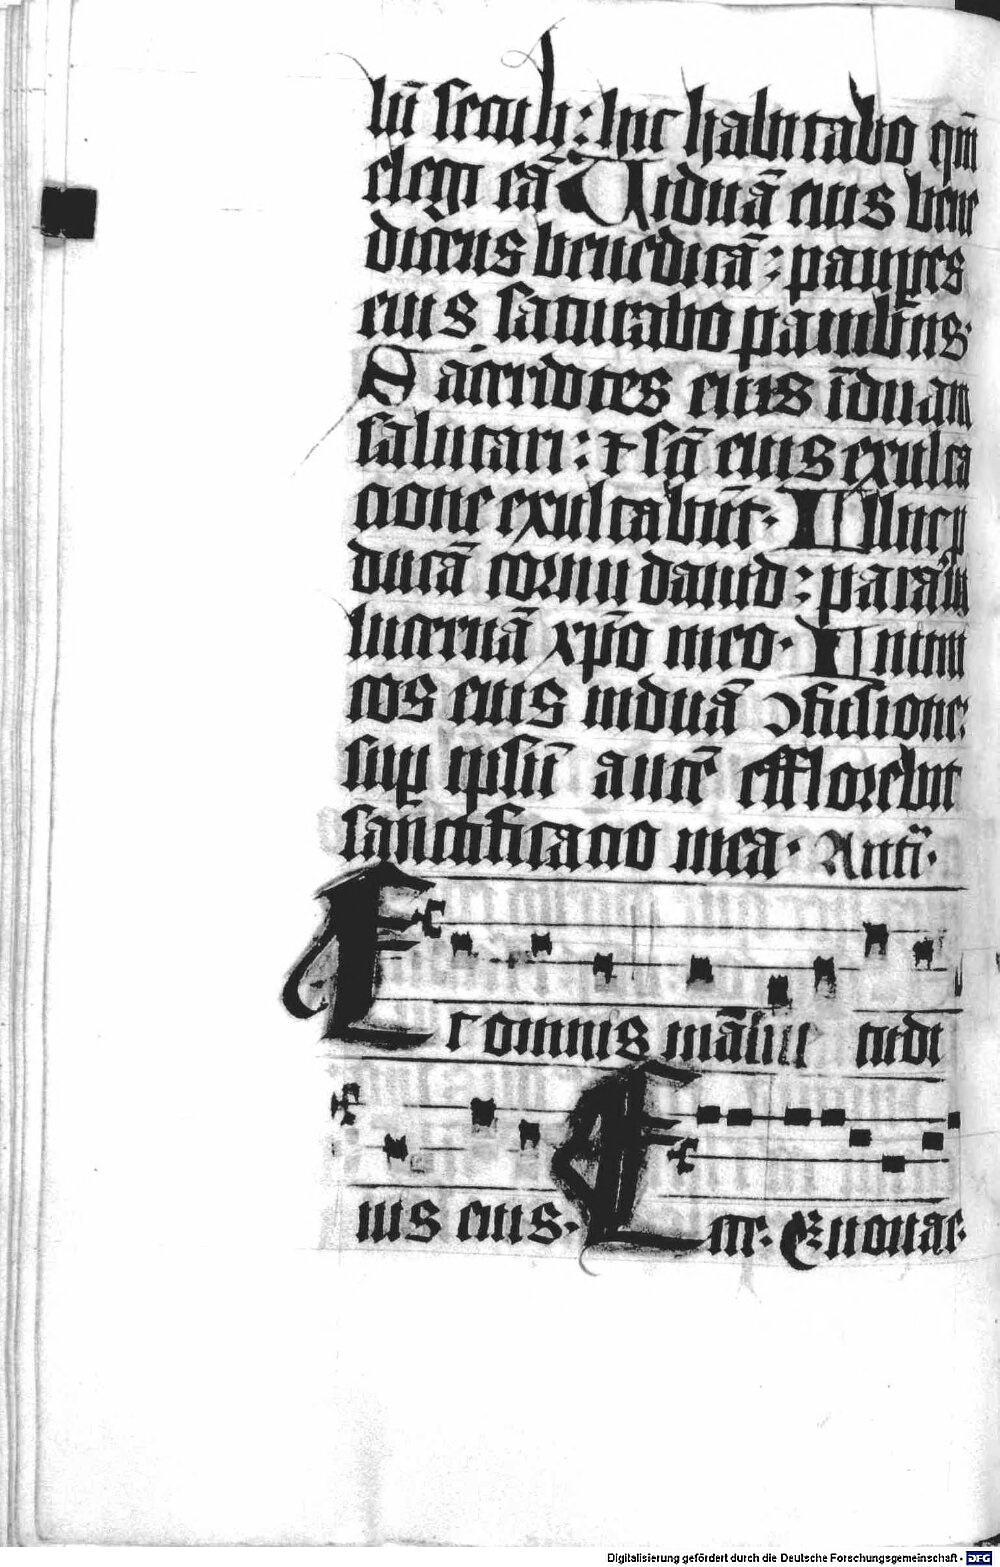 lū seculi: hic habitabo qm̄
elegi eā Uiduā eius bene
dicens benedicā: pauꝑes
eius saturabo panibus:
Sacerdotes eius īduam
salutari: ⁊ scī eius exulta
cione exultabūt. Illuc ꝓ
ducā cornu dauid: paraui
lucernā xp̄o meo. Inimi
cos eius induā ꝯfusione:
suꝑ ipsū autē efflorebit
sanctificacio mea. Antī.
Et omnis māsue tudi
nis eius. Etc. Euouae.
Digitalisierung gefördert durch die Deutsche Forschungsgemeinschaft - DFG